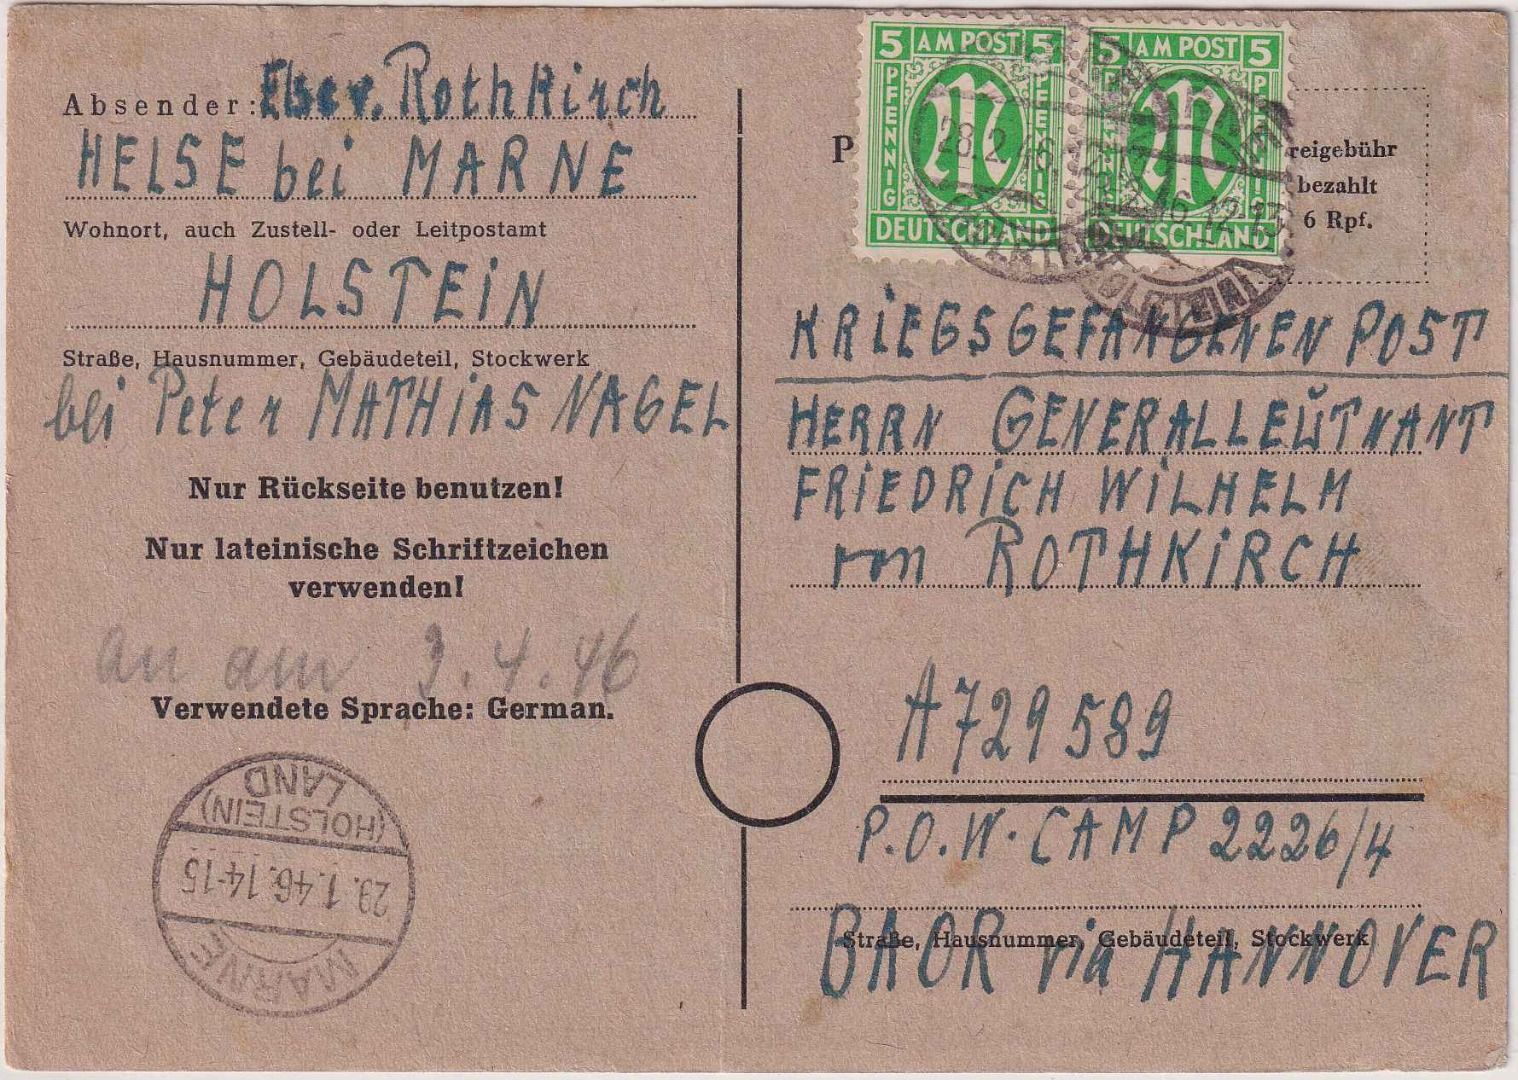 Absender: Rothkirch
HELSE bei MARNE
Wohnort, auch Zustell- oder Leitpostamt
HOLSTEIN
Straße, Hausnummer, Gebäudeteil, Stockwerk
bei Peter MATHIAS NAGEL
Nur Rückseite benutzen!
Nur lateinische Schriftzeichen
verwenden!
an am 3.4.46
Verwendete Sprache: German.
MARNE
29.1.46.14-15
(HOLSTEIN)
LAND
5 AM POST 5
PFENNIG PFENNIG
DEUTSCHLAND
5 AM POST 5
DEUTSCHLAND
28.2.46
12-13
(HOLSTEIN)
P
reigebühr
bezahlt
6 Rpf.
KRIEGSGEFANGENEN POST
HERRN GENERALLEUTNANT
FRIEDRICH WILHELM
von ROTHKIRCH
A729589
P.O.W. CAMP 2226/4
Straße, Hausnummer, Gebäudeteil, Stockwerk
BAOR via HANNOVER